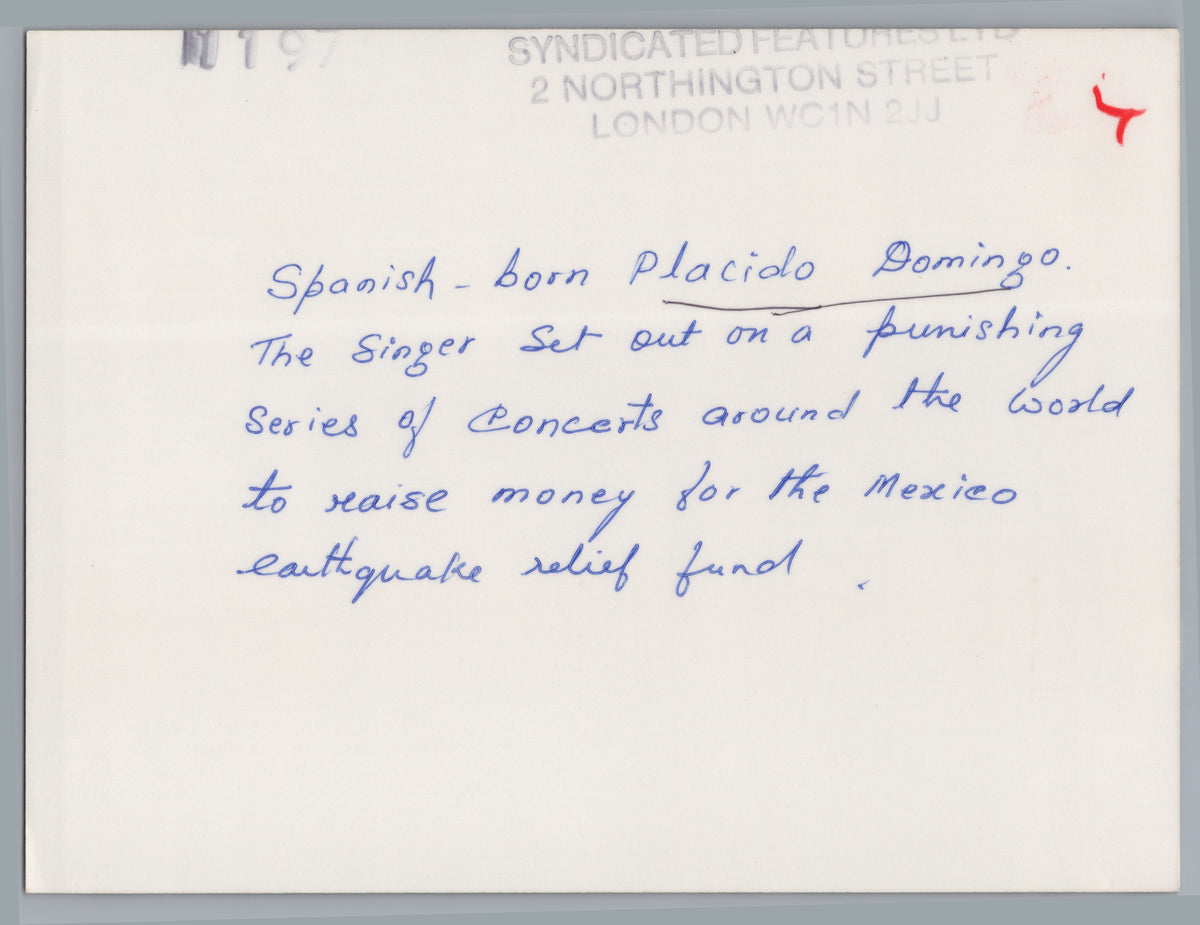 SYNDICATED FEATURES LTD
2 NORTHINGTON STREET
LONDON WC1N 2JJ
Spanish - born Placido Domingo.
The Singer Set out on a punishing
Series of Concerts around the World
to raise money for the Mexico
earthquake relief fund .